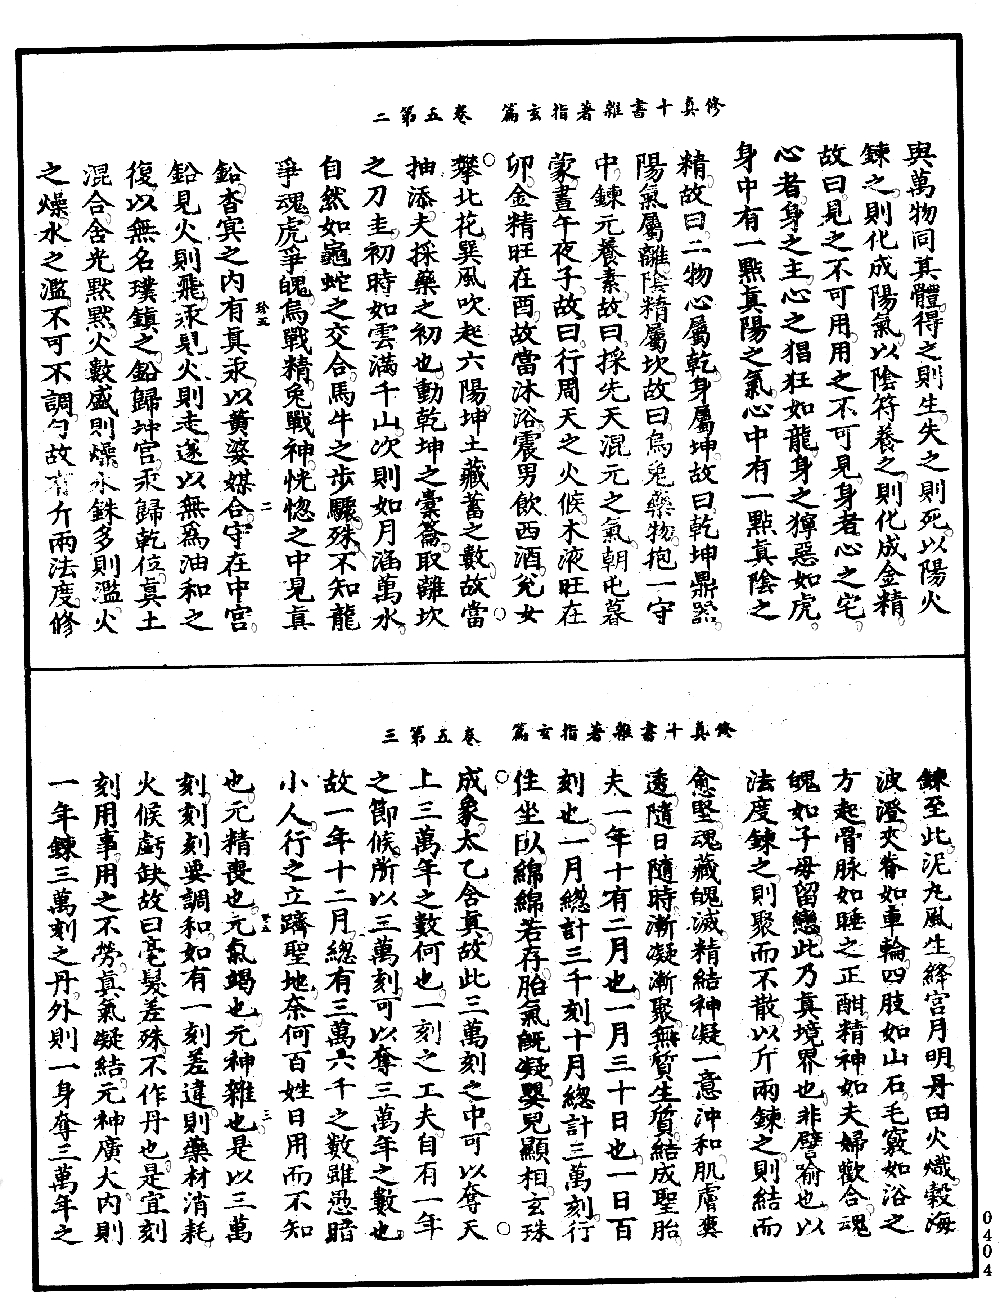 修真十書雜著指玄篇　卷五第二
與萬物同其體得之則生失之則死以陽火
鍊之則化成陽氣以陰符養之則化成金精
故曰見之不可用用之不可見身者心之宅
心者身之主心之猖狂如龍身之獰惡如虎
身中有一點真陽之氣心中有一點真陰之
精故曰二物心屬乾身屬坤故曰乾坤鼎器
陽氣屬離陰精屬坎故曰烏兔藥物抱一守
中鍊元養素故曰採先天混元之氣朝屯暮
蒙晝午夜子故曰行周天之火候木液旺在
卯金精旺在酉故當沐浴震男飲西酒兌女
攀北花巽風吹起六陽坤土藏蓄之數故當
抽添夫採藥之初也動乾坤之橐籥取離坎
之刀圭初時如雲滿千山次則如月涵萬水
自然如龜蛇之交合馬牛之步驟殊不知龍
爭魂虎爭魄烏戰精兔戰神恍惚之中見真
珍五　二
鉛杳冥之內有真汞以黃婆媒合守在中宮
鉛見火則飛汞見火則走遂以無為油和之
復以無名璞鎮之鉛歸坤宮汞歸乾位真土
混合含光默默火數盛則燥水銖多則濫火
之燥水之濫不可不調勻故有斤兩法度修
修真十書雜著指玄篇　卷五第三
鍊至此泥丸風生絳宮月明丹田火熾穀海
波澄夾脊如車輪四肢如山石毛竅如浴之
方起骨脉如睡之正酣精神如夫婦歡合魂
魄如子母留戀此乃真境界也非譬喻也以
法度鍊之則聚而不散以斤兩鍊之則結而
愈堅魂藏魄滅精結神凝一意沖和肌膚爽
透隨日隨時漸凝漸聚無質生質結成聖胎
夫一年十有二月也一月三十日也一日百
刻也一月總計三千刻十月總計三萬刻行
住坐臥綿綿若存胎氣既凝嬰兒顯相玄珠
成象太乙含真故此三萬刻之中可以奪天
上三萬年之數何也一刻之工夫自有一年
之節候所以三萬刻可以奪三萬年之數也
故一年十二月總有三萬六千之數雖愚暗
小人行之立躋聖地奈何百姓日用而不知
三
也元精喪也元氣竭也元神離也是以三萬
刻刻刻要調和如有一刻差違則藥材消耗
火候虧缺故曰毫髮差殊不作丹也是宜刻
刻用事用之不勞真氣凝結元神廣大內則
一年鍊三萬刻之丹外則一身奪三萬年之
0404